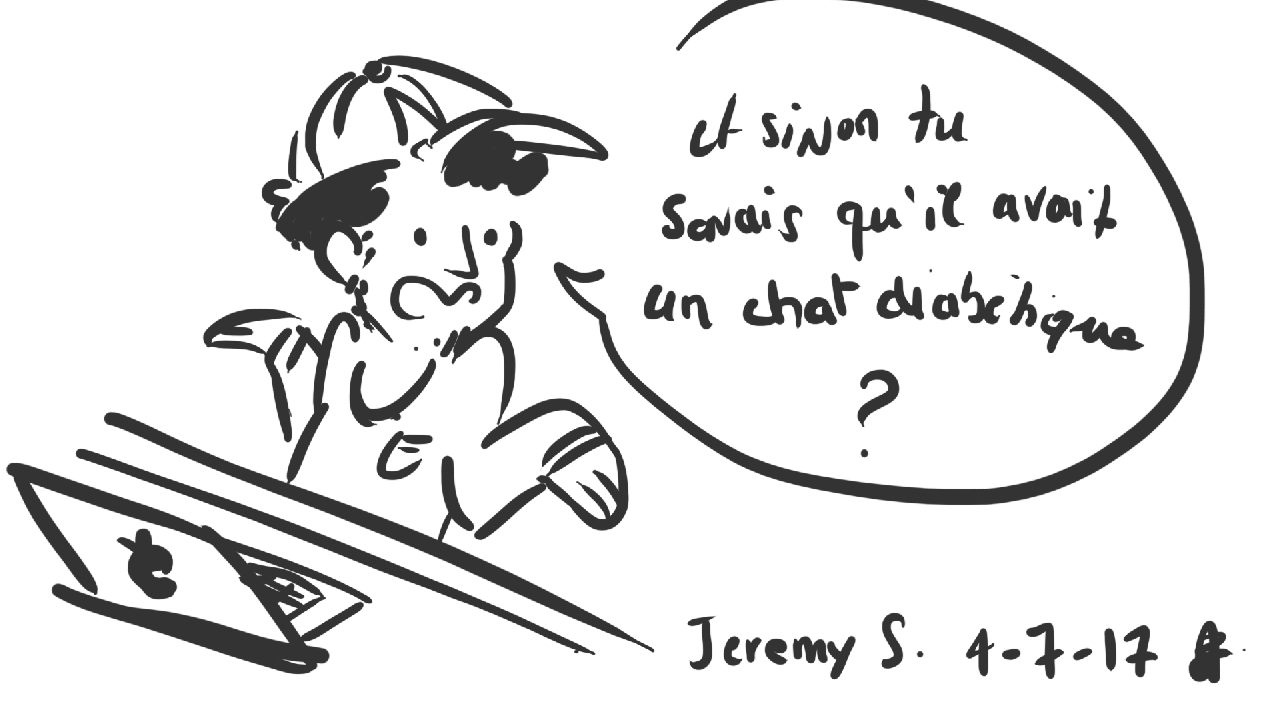 et sinon tu
savais qu'il avait
un chat diabétique
?
Jeremy S. 4-7-17